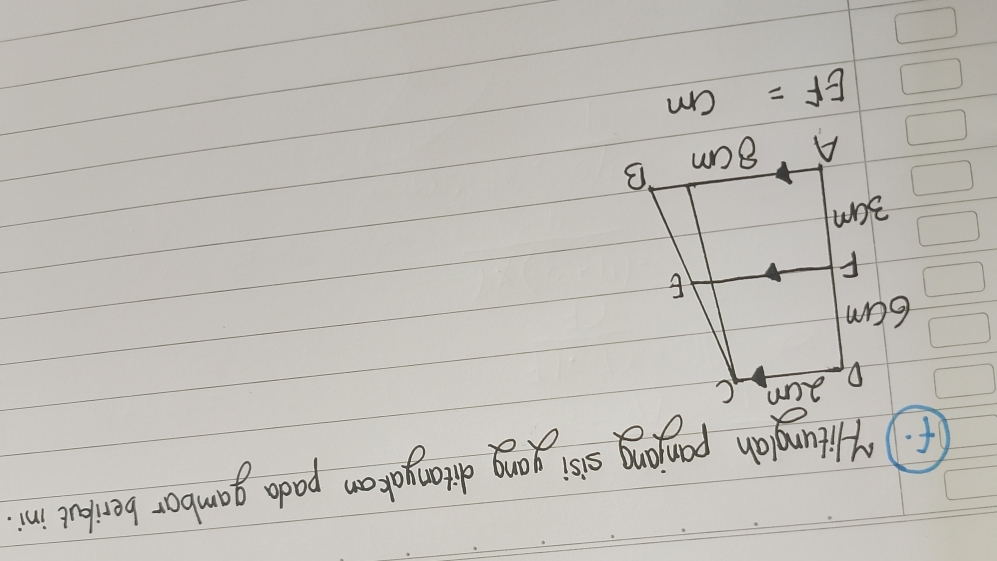 f. Hitunglah panjang sisi yang ditanyakan pada gambar berikut ini.
D 2cm C
6cm
F E
3cm
A 8cm B
EF = cm